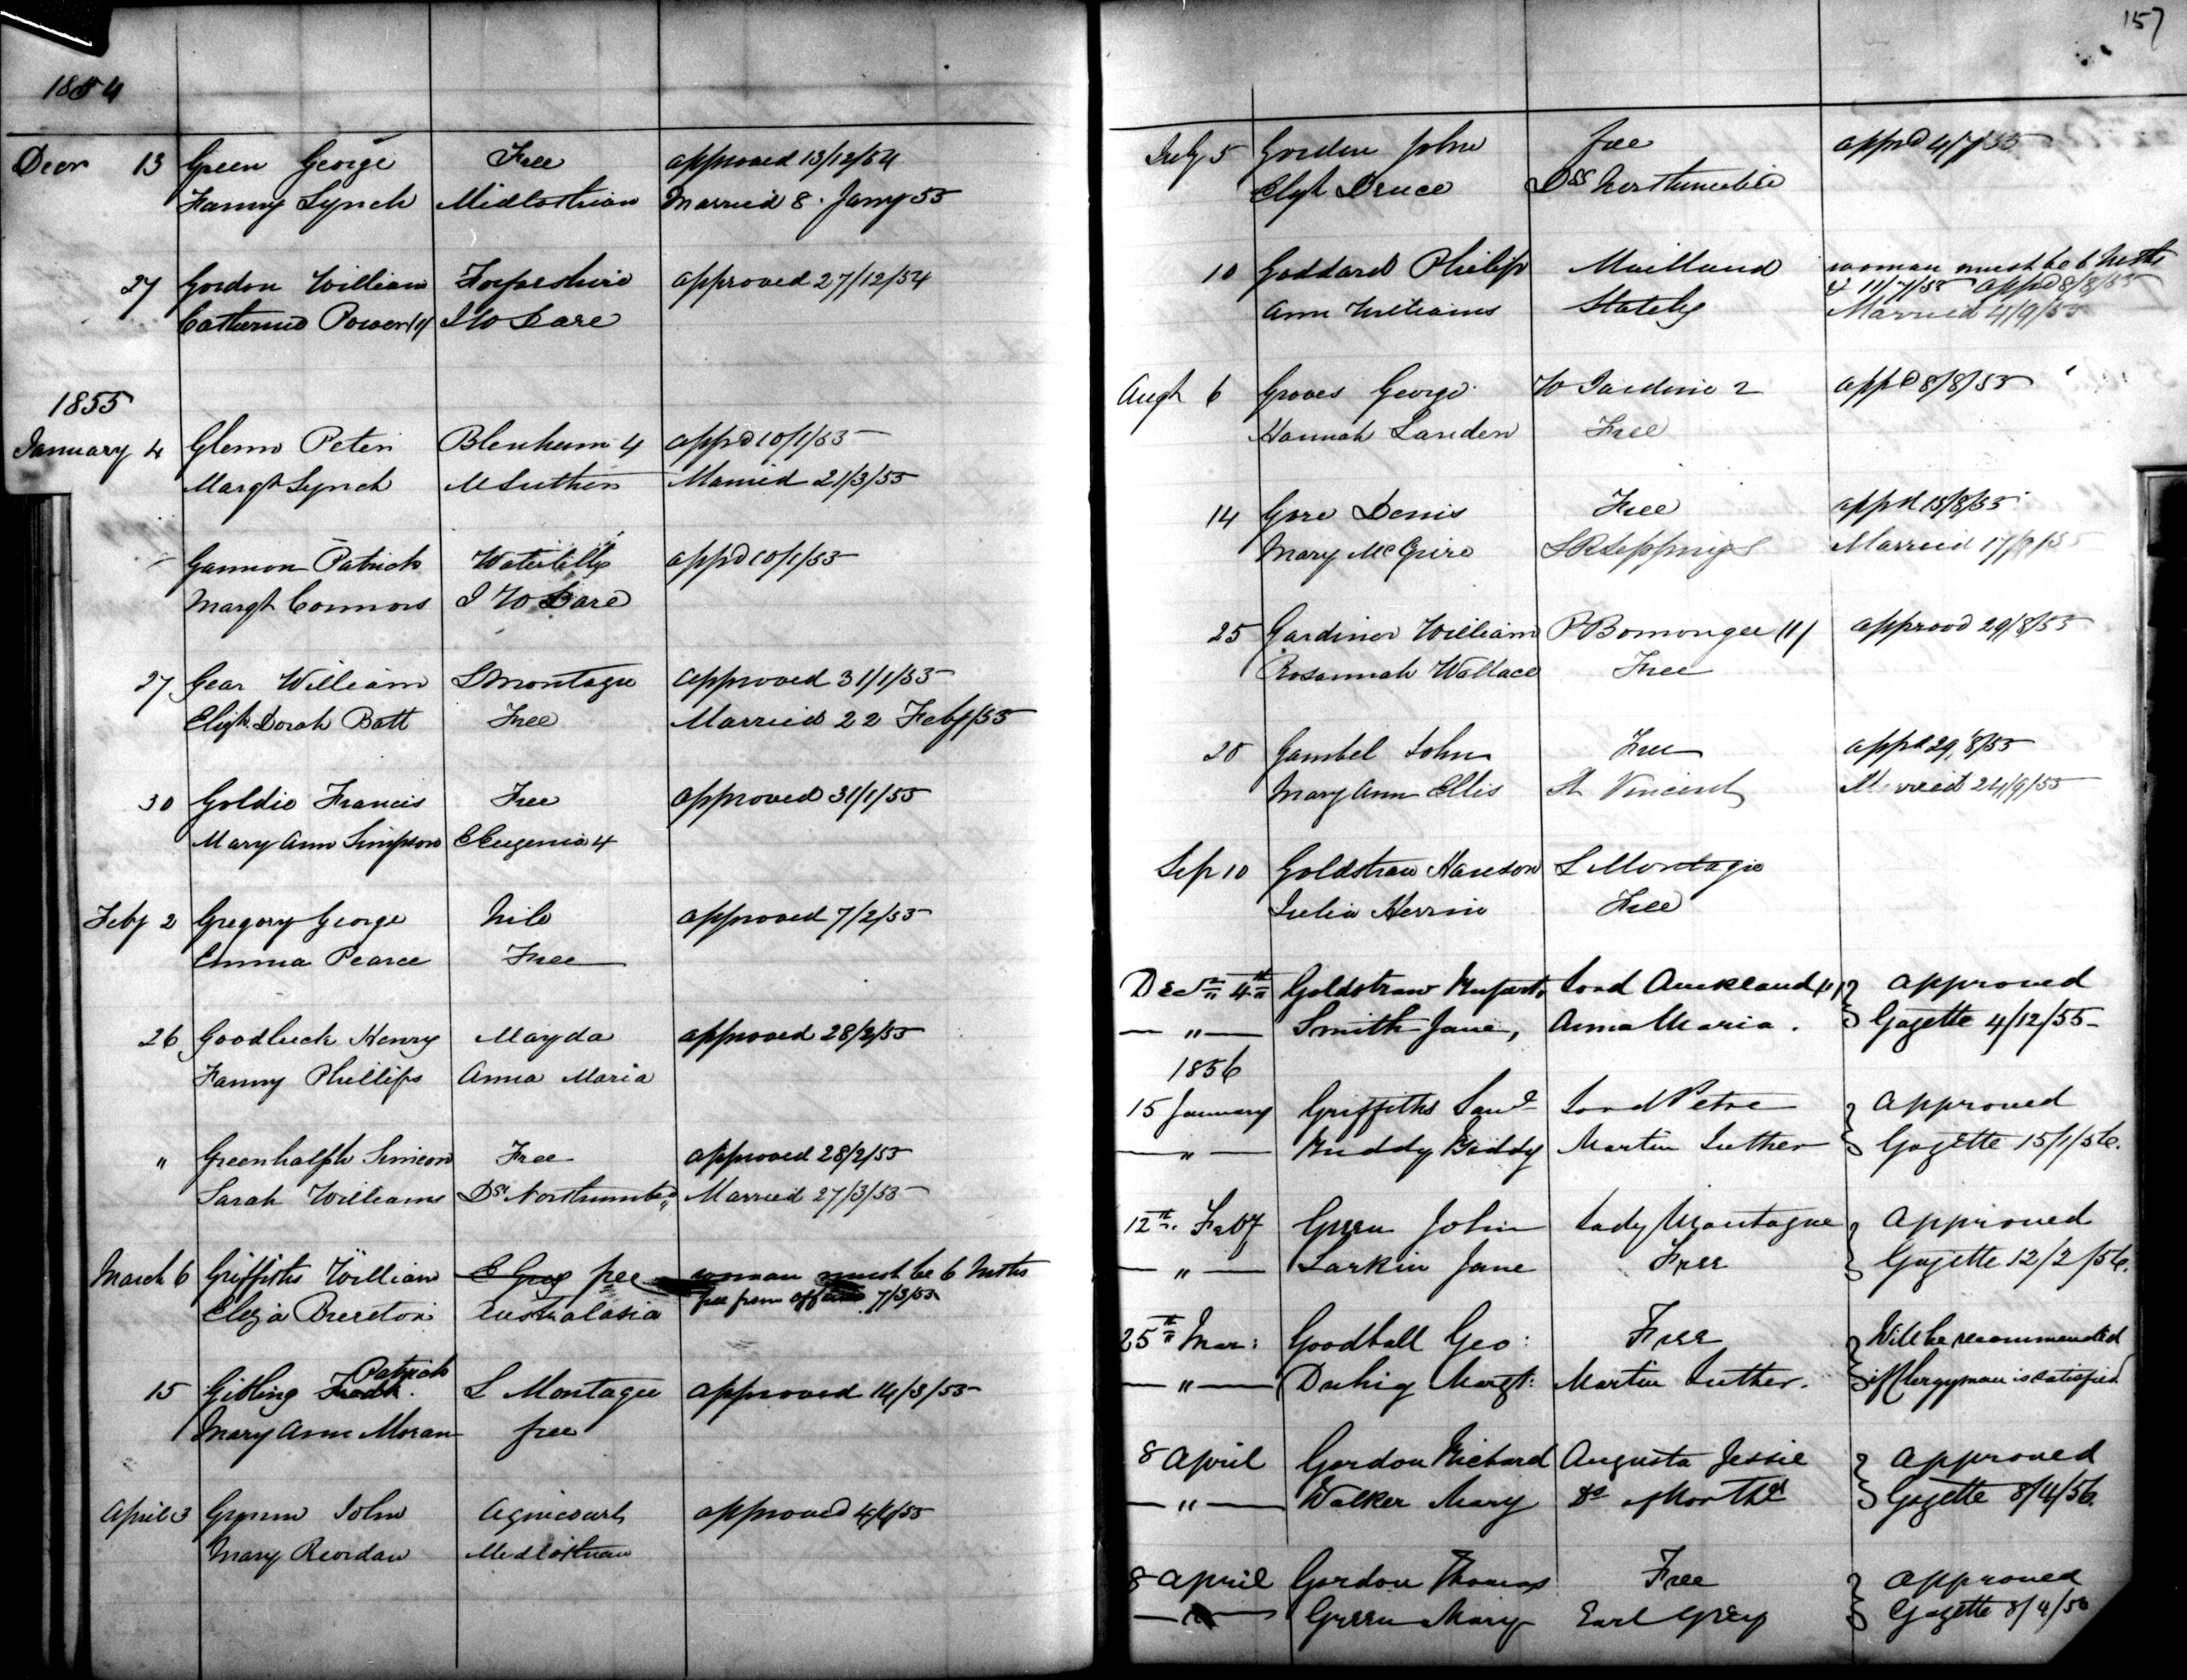 1854
Decr 13 Green George Free approved 13/12/54
Fanny Lynch Midlothian Married 8. Jany 55
27 Gordon William Forfarshire approved 27/12/54
Catherine Power J W Dare
1855
January 4 Glenn Peter Blenheim 4 appd 10/1/55
Margt Lynch M Luther Married 21/3/55
Gannon Patrick Waterlilly appd 10/1/55
Margt Connors J W Dare
27 Gear William L Montagu approved 31/1/55
Elizh Dorah Batt Free Married 22 Feby/55
30 Goldie Francis Free approved 31/1/55
Mary Ann Simpson C Eugenia 4
Feby 2 Gregory George Nile approved 7/2/55
Emma Pearce Free
26 Goodluck Henry Mayda approved 28/2/55
Fanny Phillips Anna Maria
" Greenhalph Simeon Free approved 28/2/55
Sarah Williams Dss Northumbd Married 27/3/55
March 6 Griffiths William E Grey free woman must be 6 Mths
Eliza Brereton Australasia free from offence 7/3/55
Patrick
15 Gibling L Montagu approved 14/3/55
Mary Ann Moran free
April 3 John Agincourt approved 4/4/55
Mary Reordan Midlothian
157
July 5 Gordon John free appd 4/7/55
Elizh Druce Dss Northumbd
10 Goddard Philip Maitland woman must be 6 Mths
11/7/55 appd 8/8/55
Ann Williams Stately Married 4/9/55
Augt 6 Groves George W Jardine 2 appd 8/8/55
Hannah Landen Free
14 Gore Denis Free appd 15/8/55
Mary McGuire S R Seppings Married
25 Gardiner William P Bomongee (1) approvd 29/8/55
Rosannah Wallace Free
28 Gambel John Free appd 29/8/55
Mary Ann Ellis St Vincent Married 24/9/55
Sep 10 Goldstraw L Montagu
Julia Herrin Free
Decr 4th Goldstraw Lord Auckland approved
— " — Smith Jane, Anna Maria. Gazette 4/12/55
1856
15 January Griffiths Saml Lord Petre approved
— " — Ruddy Biddy Martin Luther Gazette 15/1/56.
12th. Feby Green John Lady Montague approved
— " — Larkin Jane Free Gazette 12/2/56.
25th Mar: Goodhall Geo: Free Will be recommended
— " — Duhig Margt: Martin Luther. if Clergyman is satisfied
8 April Gordon Richard Augusta Jessie approved
— " — Walker Mary Ds of Northd Gazette 8/4/56.
8 April Gordon Thomas Free approved
— " — Green Mary Earl Grey Gazette 8/4/56